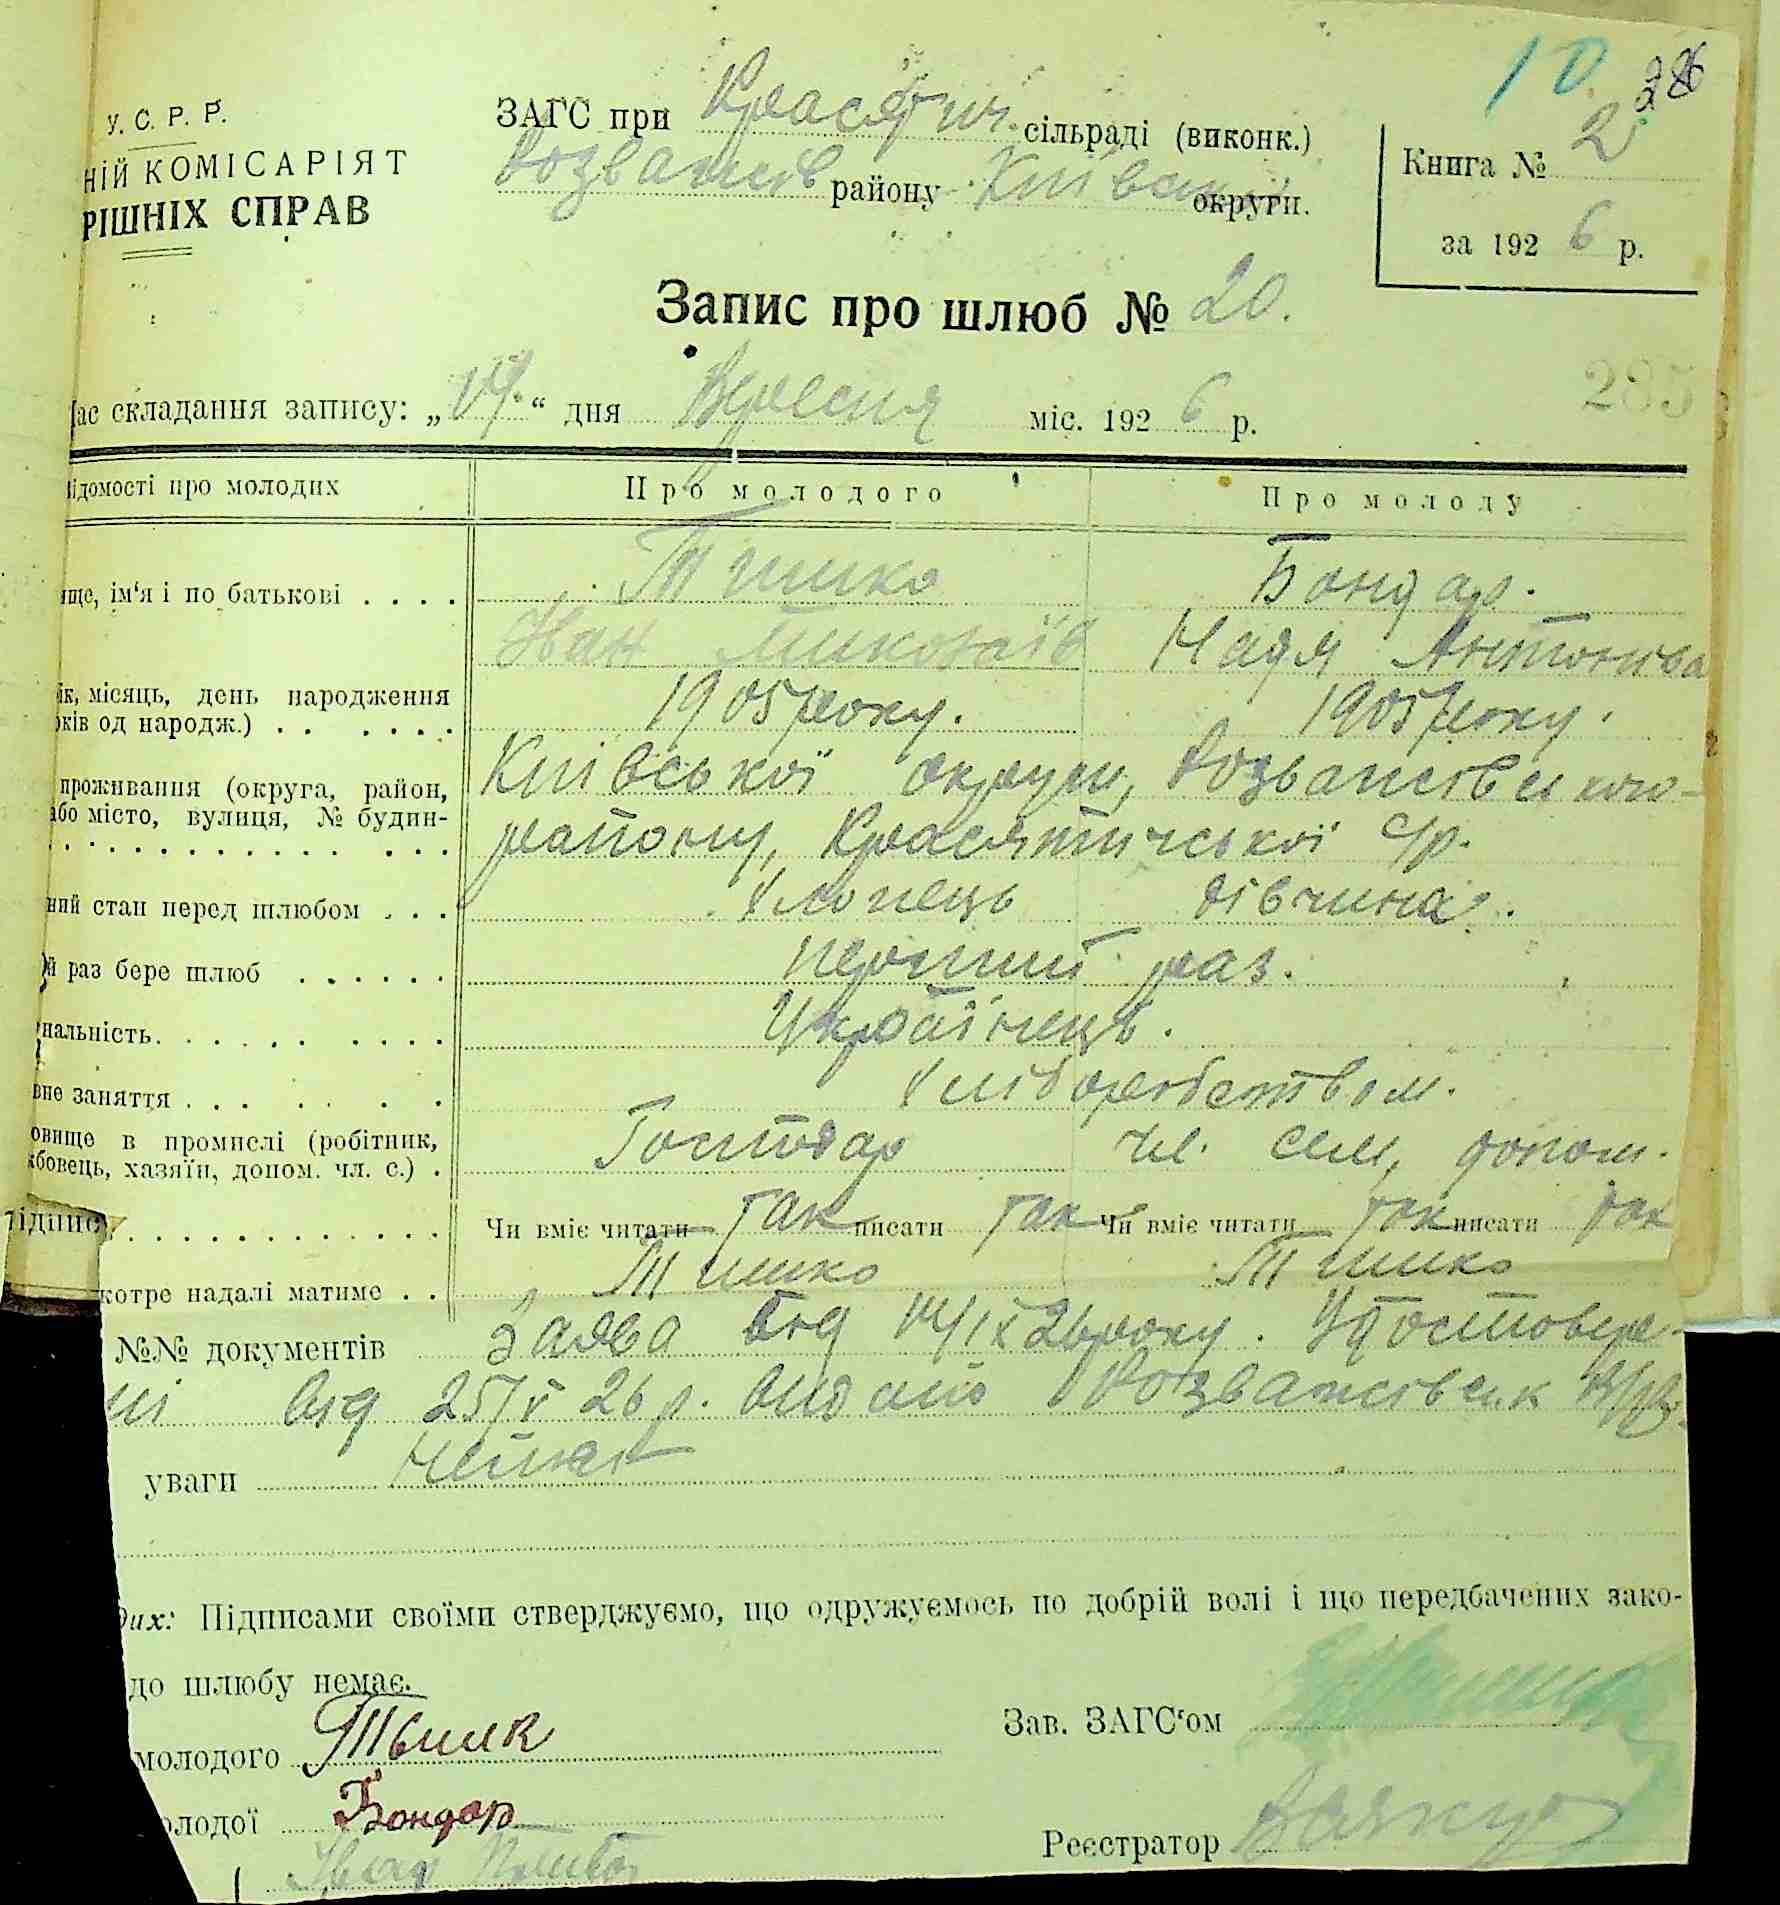 У. С. Р. Р.
НІЙ КОМІСАРІЯТ
РІШНІХ СПРАВ
ЗАГС при Красятич. сільраді (виконк.)
Розважів району Київської округи.
10
Книга № 2
за 1926 р.
Запис про шлюб № 20.
285
Час складання запису: „14“ дня Вересня міс. 1926 р.
Відомості про молодих Про молодого Про молоду
ище, ім‘я і по батькові . . . . Тишко Бондар.
Іван Миколаїв Надя Антонова
ік, місяць, день народження
оків од народж.) . . . . . . 1905 року. 1905 року.
проживання (округа, район, Київської округи, Розважівського
або місто, вулиця, № будин- району, Красятичської с/р.
ний стан перед шлюбом . . . Хлопець дівчина.
й раз бере шлюб . . . . . . перший раз.
нальність. . . . . . . . . . Українець.
вне заняття . . . . . . . Хліборобством.
овище в промислі (робітник, Господар чл. сем, допом.
жбовець, хазяїн, допом. чл. с.) .
підпису. . . . . . . . . . . . . Чи вміє читати так писати так Чи вміє читати так писати так
котре надалі матиме . . Тишко Тишко
№№ документів Заява від 14/IX 26 року. Удостовере-
ні від 25/V 26 р. видано Розважівськ
уваги немає
дих: Підписами своїми стверджуємо, що одружуємось по добрій волі і що передбачених зако-
до шлюбу немає.
Зав. ЗАГС‘ом
молодого Тишк
олодої Бондар
Реєстратор
Іван